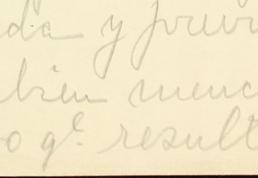 da y
bien menc
o qe. result